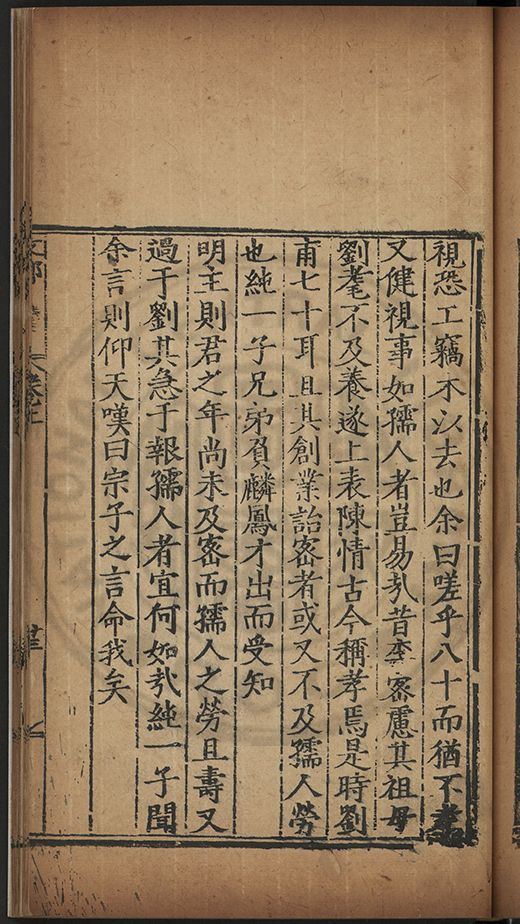 視恐工竊不以去也余曰嗟乎八十而猶不耄
又健視事如孺人者豈易乳昔李宻慮其祖母
劉耄不及養遂上表陳情古今稱孝焉是時劉
甫七十耳且其創業詒宻者或又不及孺人勞
也純一子兄弟負麟鳳才出而受知
明主則君之年尚未及宻而孺人之勞且壽又
過于劉其急于報孺人者宜何如㢤純一子聞
余言則仰天嘆曰宗子之言命我矣